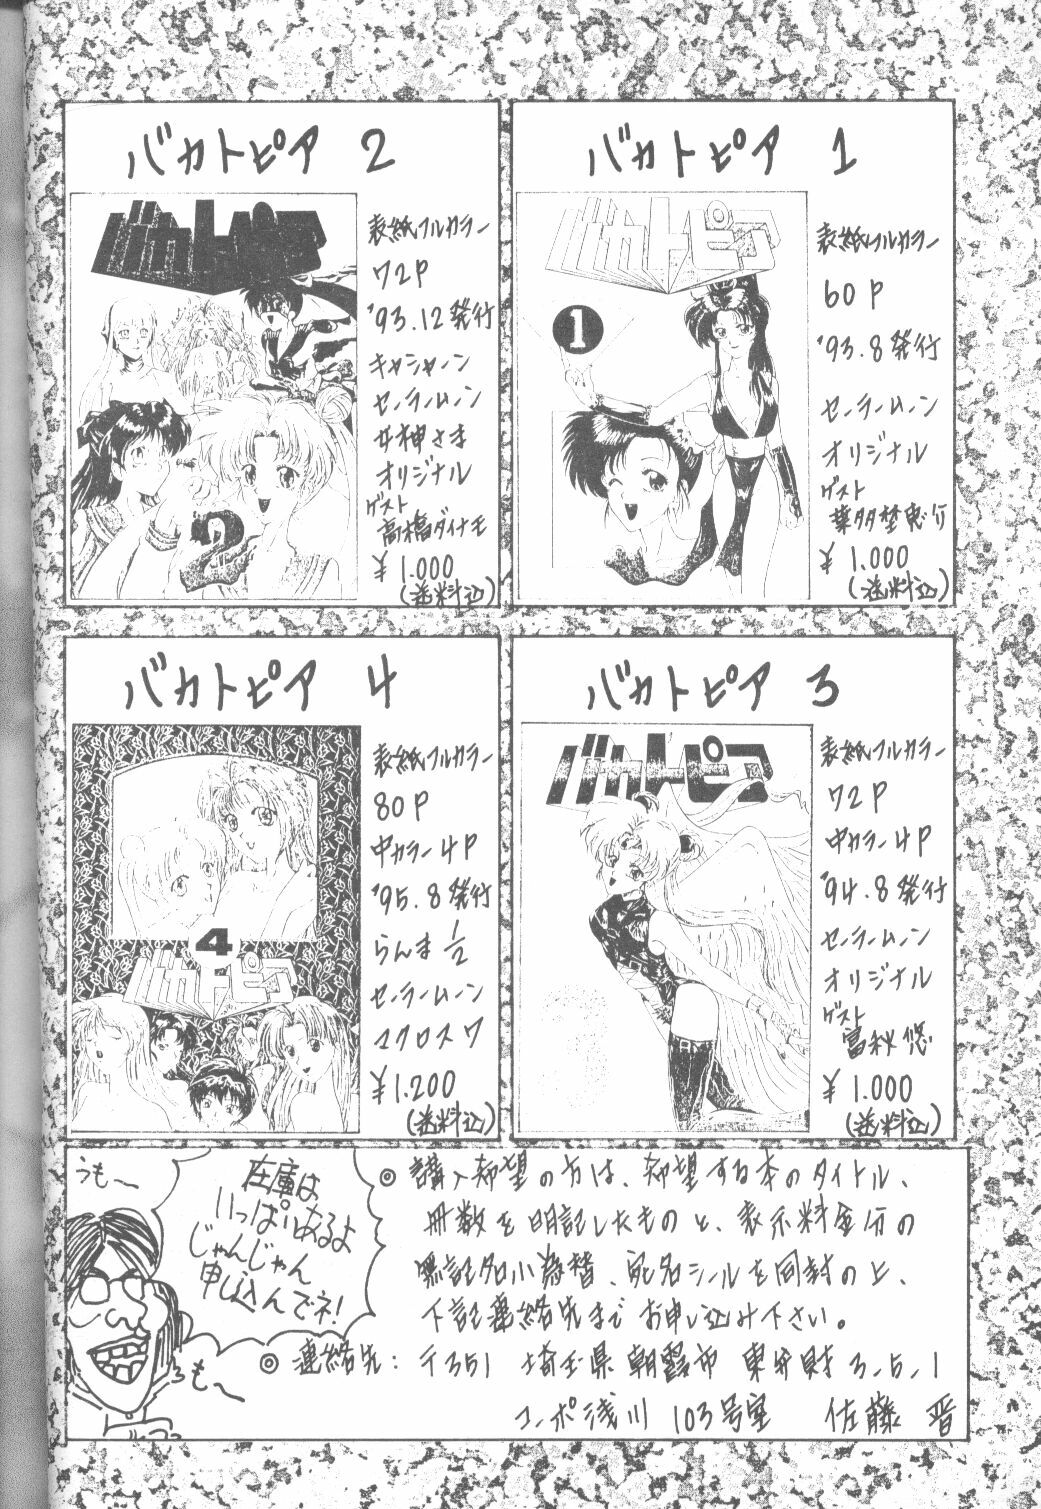 バカトピア 1
バカトピア
1
表紙フルカラー
60P
'93.8発行
セーラームーン
オリジナル
ゲスト
¥1.000
(送料込)
バカトピア 2
バカトピア
2
表紙フルカラー
72P
'93.12発行
キャシャーン
セーラームーン
女神さま
オリジナル
ゲスト
高橋ダイナモ
¥1.000
(送料込)
バカトピア 3
バカトピア
表紙フルカラー
72P
中カラー4P
'94.8発行
セーラームーン
オリジナル
ゲスト
富秋悠
¥1.000
(送料込)
バカトピア 4
4
バカトピア
表紙フルカラー
80P
中カラー4P
'95.8発行
らんま1/2
セーラームーン
マクロス7
¥1.200
(送料込)
うも〜
在庫は
いっぱいあるよ
じゃんじゃん
申し込んでネ!
うも〜
◎ 購入希望の方は、希望する本のタイトル、
冊数を明記したものと、表示料金分の
無記名小為替、宛名シールを同封の上、
下記連絡先まで お申し込み下さい。
◎ 連絡先: 〒351 埼玉県 朝霞市 東弁財 3-5-1
コーポ浅川 103号室 佐藤 晋